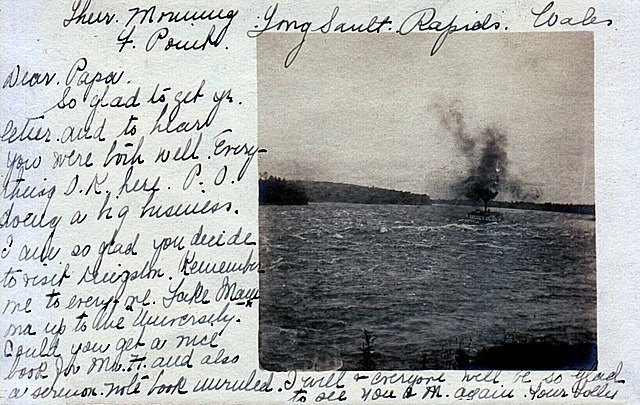 Thur. Morning Long Sault Rapids. Wales
F. Point.
Dear Papa.
So glad to get yr.
letter and to hear
you were both well. Every-
thing O.K. here. P. O.
doing a big business.
I am so glad you decide
to visit Kingston. Remember
me to every one. Take Mam
ma up to the University.
Could you get a nice
book for Mr. H. and also
a sermon note book unruled. I will & everyone will be so glad
to see you & M. again. Your